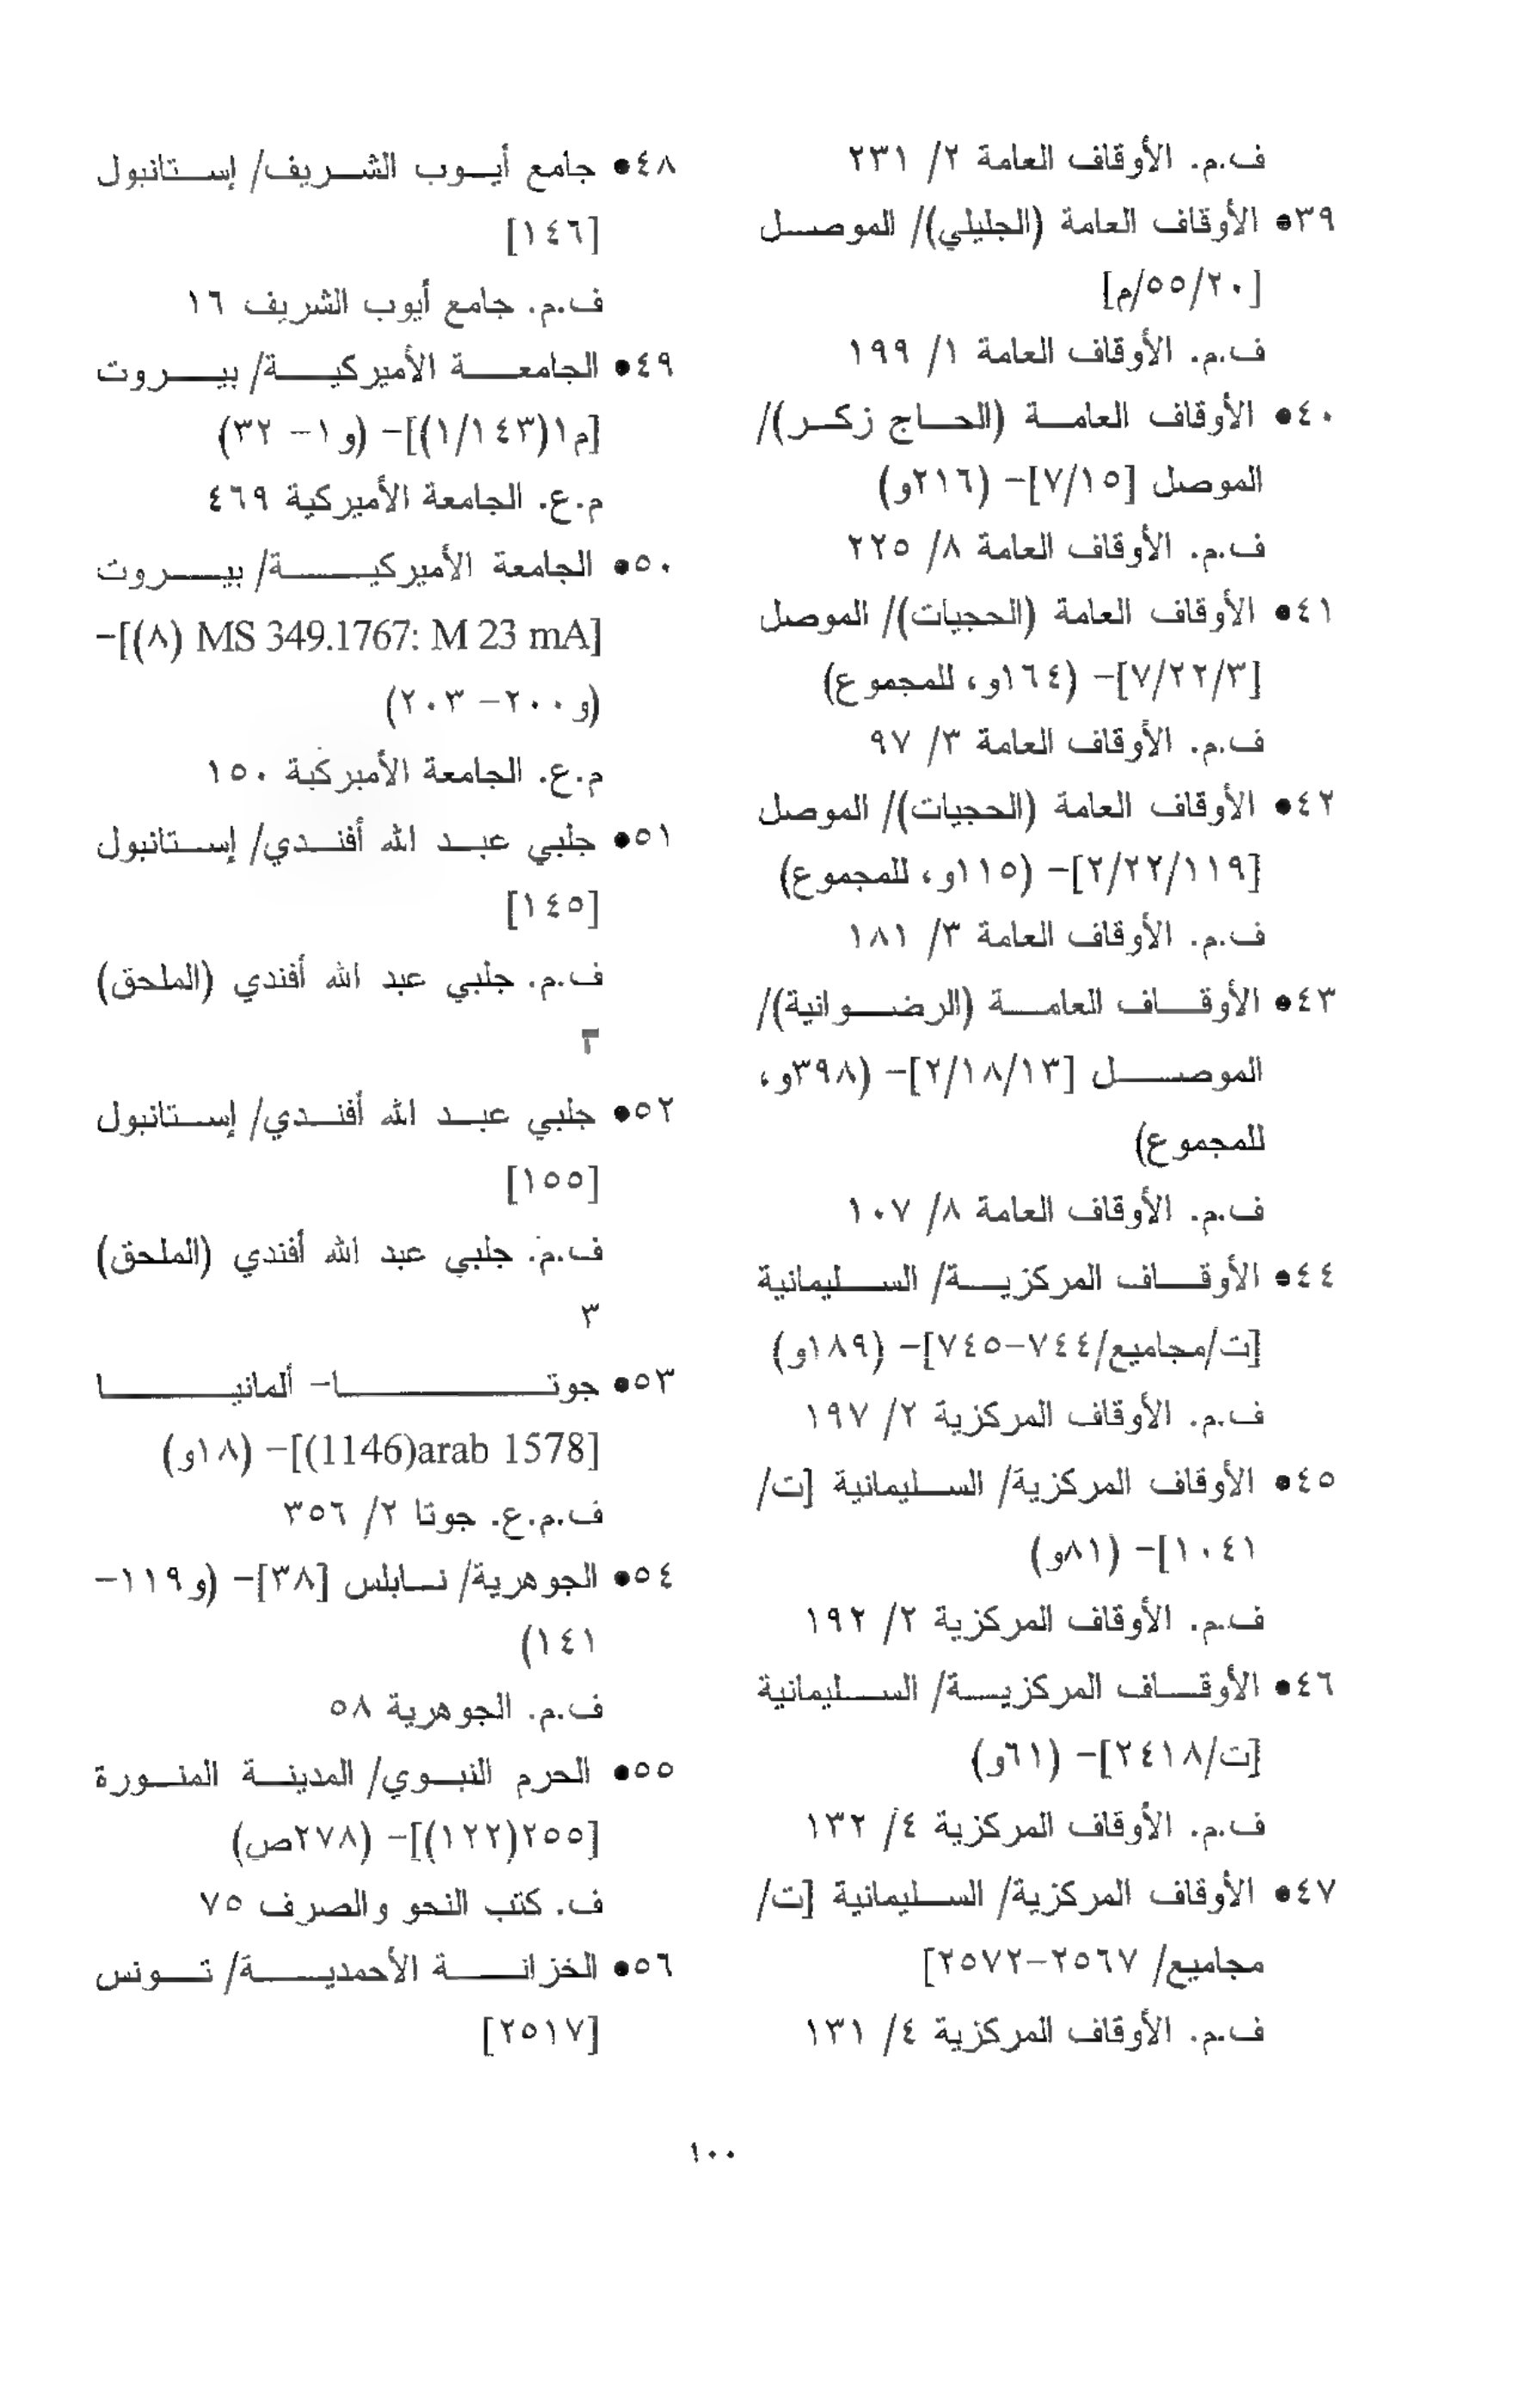 ف.م. الأوقاف العامة ٢/ ٢٣١
٣٩• الأوقاف العامة (الجليلي)/ الموصل
[٥٥/٢٠/م]
ف.م. الأوقاف العامة ١/ ١٩٩
٤٠• الأوقاف العامة (الحاج زكر)/
الموصل [٧/١٥]- (٢١٦و)
ف.م. الأوقاف العامة ٨/ ٢٢٥
٤١• الأوقاف العامة (الحجيات)/ الموصل
[٧/٢٢/٣]- (١٦٤و، للمجموع)
ف.م. الأوقاف العامة ٣/ ٩٧
٤٢• الأوقاف العامة (الحجيات)/ الموصل
[٢/٢٢/١١٩]- (١١٥و، للمجموع)
ف.م. الأوقاف العامة ٣/ ١٨١
٤٣• الأوقاف العامة (الرضوانية)/
الموصل [٢/١٨/١٣]- (٣٩٨و،
للمجموع)
ف.م. الأوقاف العامة ٨/ ١٠٧
٤٤• الأوقاف المركزية/ السليمانية
[ت/مجاميع/٧٤٤-٧٤٥]- (١٨٩و)
ف.م. الأوقاف المركزية ٢/ ١٩٧
٤٥• الأوقاف المركزية/ السليمانية [ت/
١٠٤١]- (٨١و)
ف.م. الأوقاف المركزية ٢/ ١٩٢
٤٦• الأوقاف المركزية/ السليمانية
[ت/٢٤١٨]- (٦١و)
ف.م. الأوقاف المركزية ٤/ ١٣٢
٤٧• الأوقاف المركزية/ السليمانية [ت/
مجاميع/ ٢٥٦٧-٢٥٧٢]
ف.م. الأوقاف المركزية ٤/ ١٣١
٤٨• جامع أيوب الشريف/ إستانبول
[١٤٦]
ف.م. جامع أيوب الشريف ١٦
٤٩• الجامعة الأميركية/ بيروت
[م١(١/١٤٣)]- (و١- ٣٢)
م.ع. الجامعة الأميركية ٤٦٩
٥٠• الجامعة الأميركية/ بيروت
[MS 349.1767: M 23 mA (٨)]-
(و٢٠٠- ٢٠٣)
م.ع. الجامعة الأميركية ١٥٠
٥١• جلبي عبد الله أفندي/ إستانبول
[١٤٥]
ف.م. جلبي عبد الله أفندي (الملحق)
٣
٥٢• جلبي عبد الله أفندي/ إستانبول
[١٥٥]
ف.م. جلبي عبد الله أفندي (الملحق)
٣
٥٣• جوتا- ألمانيا
[(1146)arab 1578]- (١٨و)
ف.م.ع. جوتا ٢/ ٣٥٦
٥٤• الجوهرية/ نابلس [٣٨]- (و١١٩-
١٤١)
ف.م. الجوهرية ٥٨
٥٥• الحرم النبوي/ المدينة المنورة
[٢٥٥(١٢٢)]- (٢٧٨ص)
ف. كتب النحو والصرف ٧٥
٥٦• الخزانة الأحمدية/ تونس
[٢٥١٧]
١٠٠